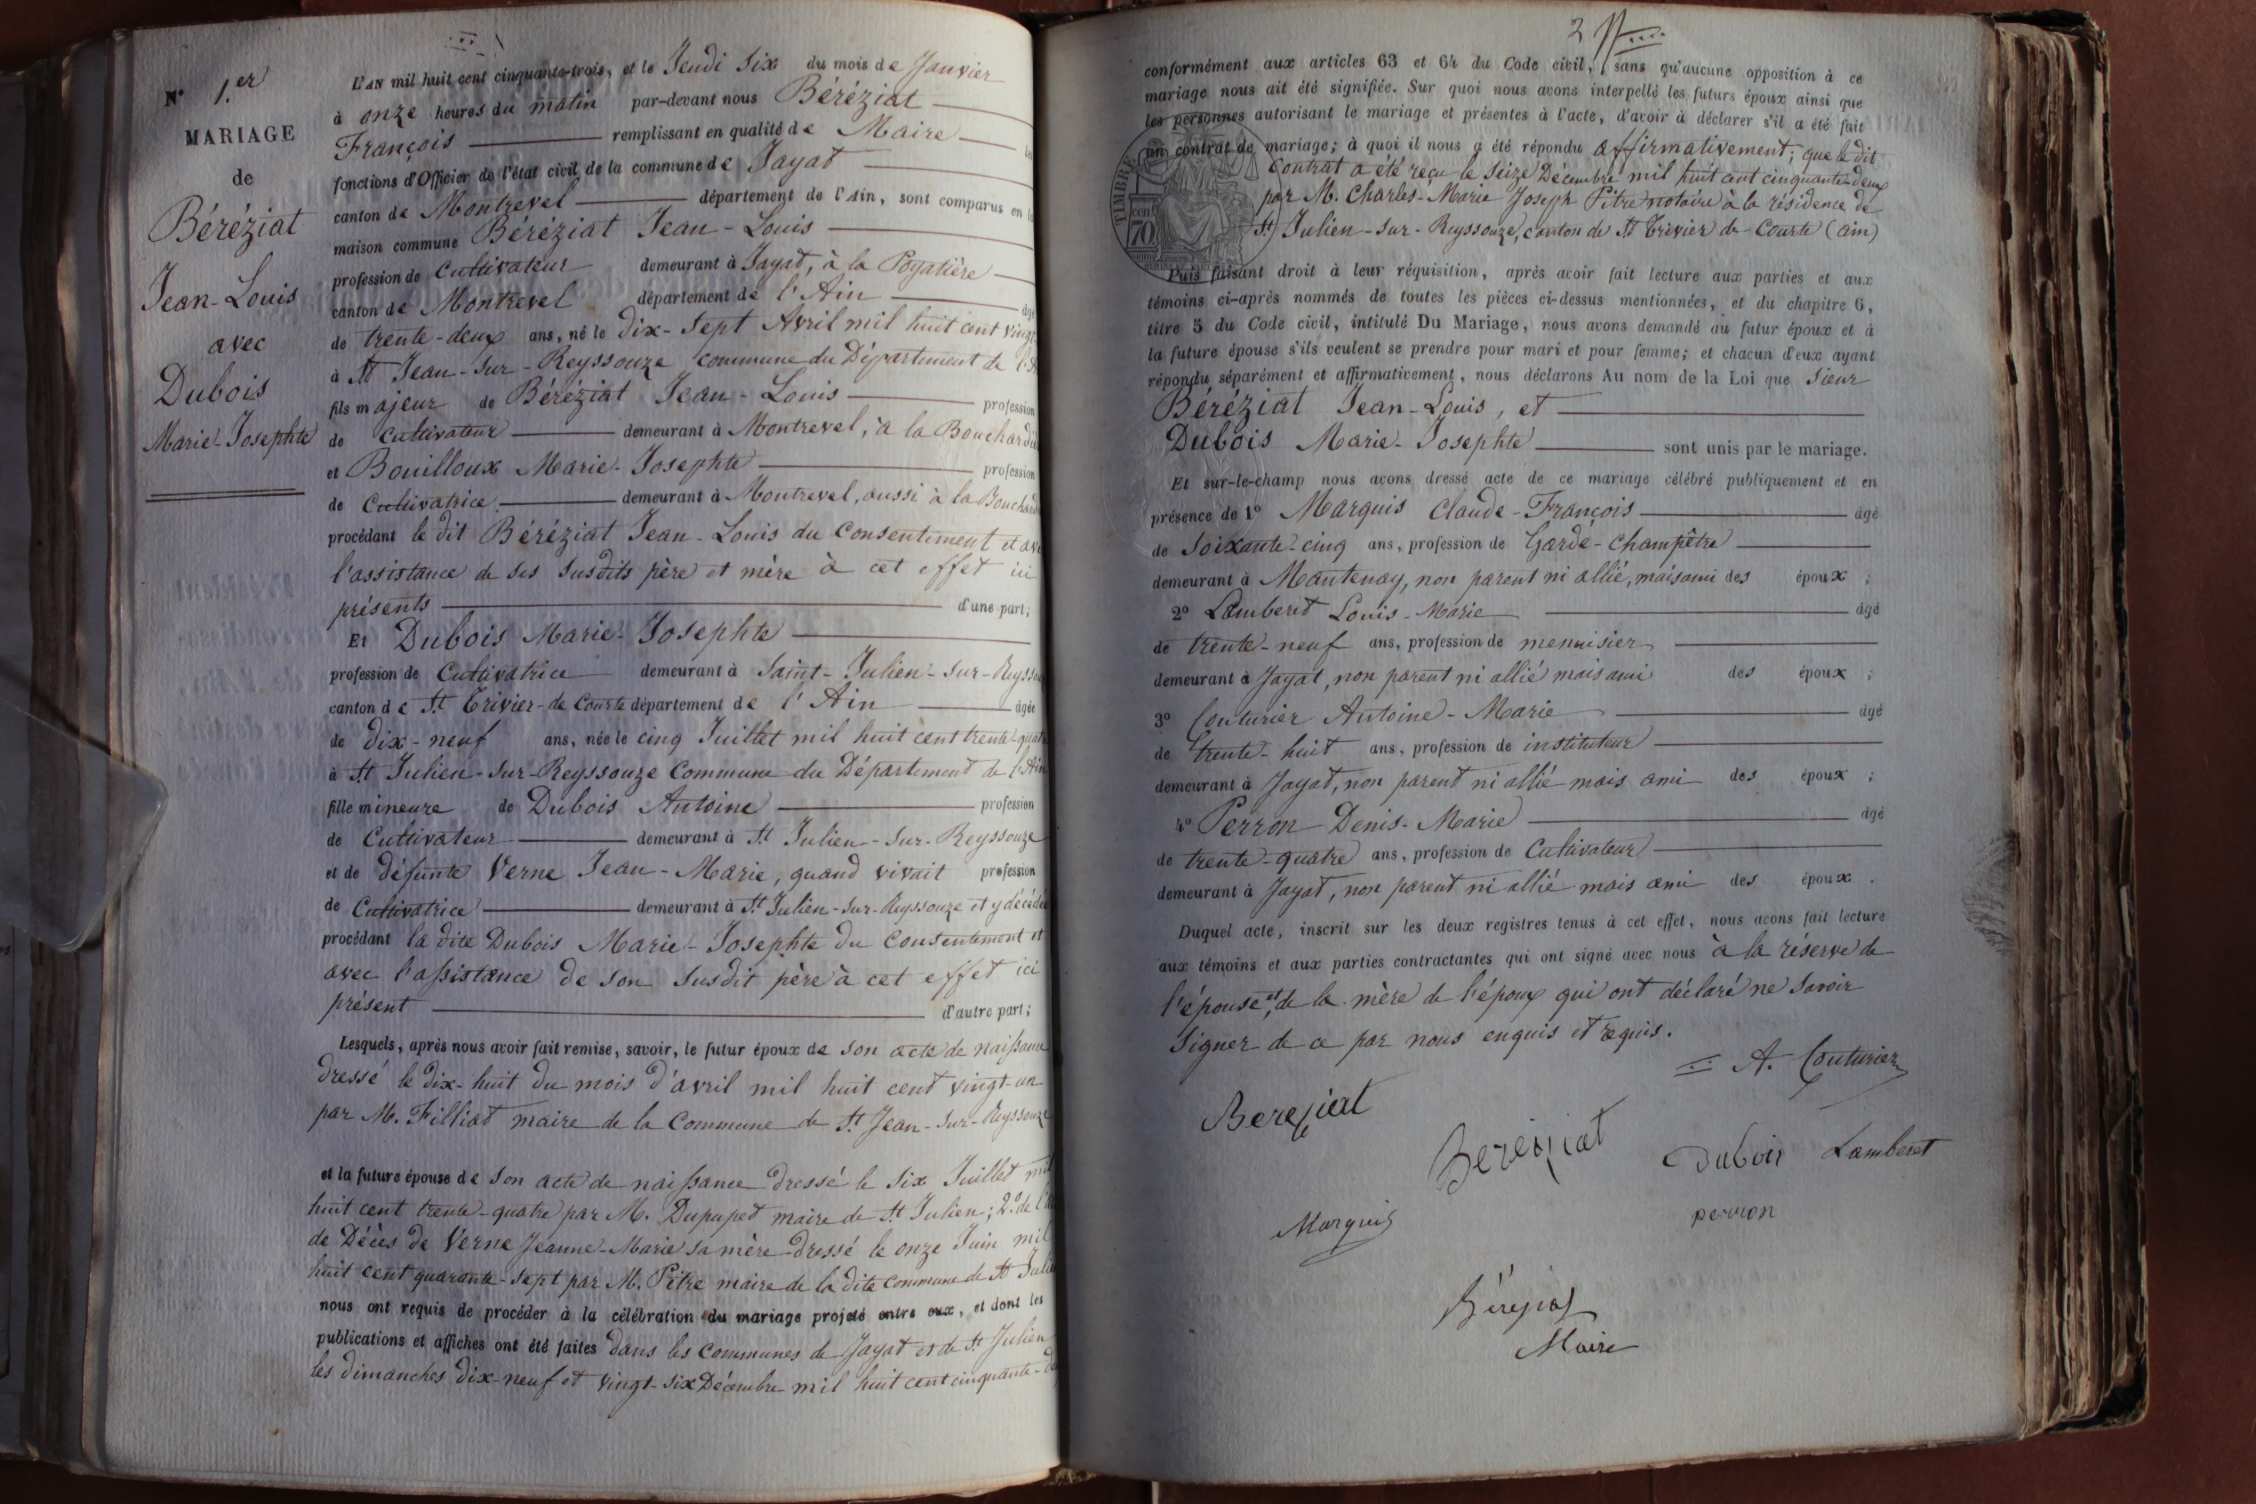 N° 1.er
MARIAGE
de
Béréziat
Jean-Louis
avec
Dubois
Marie-Josephte
L'AN mil huit cent cinquante-trois, et le Jeudi six du mois de Janvier
à onze heures du matin par-devant nous Béréziat
François remplissant en qualité de Maire les
fonctions d'Officier de l'état civil de la commune de Jayat
canton de Montrevel département de l'Ain, sont comparus en la
maison commune Béréziat Jean-Louis
profession de Cultivateur demeurant à Jayat, à la Pogatière
canton de Montrevel département de l'Ain âgé
de trente-deux ans, né le dix-sept Avril mil huit cent vingt
à St Jean-sur-Reyssouze commune du Département de l'A
fils majeur de Béréziat Jean-Louis profession
de Cultivateur demeurant à Montrevel, à la Bouchard
et Bouilloux Marie-Josephte profession
de Cultivatrice demeurant à Montrevel, aussi à la Bouchard
procédant le dit Béréziat Jean-Louis du consentement et av
l'assistance de ses susdits père et mère à cet effet ici
présents d'une part;
Et Dubois Marie-Josephte
profession de Cultivatrice demeurant à Saint-Julien-sur-Reyss
canton de St Trivier-de Courte département de l'Ain âgée
de dix-neuf ans, née le cinq Juillet mil huit cent trente-quat
à St Julien-sur-Reyssouze Commune du Département de l'Ain
fille mineure de Dubois Antoine profession
de Cultivateur demeurant à St Julien-sur-Reyssouze
et de défunte Verne Jean-Marie, quand vivait profession
de Cultivatrice demeurant à St Julien-sur-Reyssouze et y décédée
procédant la dite Dubois Marie-Josephte du consentement et
avec l'assistance de son susdit père à cet effet ici
présent d'autre part;
Lesquels, après nous avoir fait remise, savoir, le futur époux de son acte de naissance
dressé le dix-huit du mois d'avril mil huit cent vingt-un
par M. Filliat maire de la Commune de St Jean-sur-Reyssouze
et la future épouse de son acte de naissance dressé le six Juillet mil
huit cent trente-quatre par M. Dupupet maire de St Julien; 2° de l'
de Décès de Verne Jeanne-Marie sa mère dressé le onze Juin mil
huit cent quarante-sept par M. Pitre maire de la dite commune de St Juli
nous ont requis de procéder à la célébration du mariage projeté entre eux, et dont les
publications et affiches ont été faites dans les communes de Jayat et de St Julien
les dimanches dix-neuf et vingt-six Décembre mil huit cent cinquante-d
2
conformément aux articles 63 et 64 du Code civil, sans qu'aucune opposition à ce
mariage nous ait été signifiée. Sur quoi nous avons interpellé les futurs époux ainsi que
les personnes autorisant le mariage et présentes à l'acte, d'avoir à déclarer s'il a été fait
un contrat de mariage; à quoi il nous a été répondu affirmativement; que le dit
contrat a été reçu le seize Décembre mil huit cent cinquante-deux
par M. Charles-Marie Joseph Pitre notaire à la résidence de
St Julien-sur-Reyssouze, canton de St Trivier de Courte (ain)
TIMBRE
70 cent
Puis faisant droit à leur réquisition, après avoir fait lecture aux parties et aux
témoins ci-après nommés de toutes les pièces ci-dessus mentionnées, et du chapitre 6,
titre 5 du Code civil, intitulé Du Mariage, nous avons demandé au futur époux et à
la future épouse s'ils veulent se prendre pour mari et pour femme; et chacun d'eux ayant
répondu séparément et affirmativement, nous déclarons Au nom de la Loi que sieur
Béréziat Jean-Louis, et
Dubois Marie-Josephte sont unis par le mariage.
Et sur-le-champ nous avons dressé acte de ce mariage célébré publiquement et en
présence de 1° Marquis Claude-François âgé
de soixante-cinq ans, profession de Garde-Champêtre
demeurant à Mantenay, non parent ni allié, mais ami des époux ;
2° Lamberet Louis-Marie âgé
de trente-neuf ans, profession de menuisier
demeurant à Jayat, non parent ni allié mais ami des époux ;
3° Couturier Antoine-Marie âgé
de trente-huit ans, profession de instituteur
demeurant à Jayat, non parent ni allié mais ami des époux ;
4° Perron Denis-Marie âgé
de trente-quatre ans, profession de Cultivateur
demeurant à Jayat, non parent ni allié mais ami des époux .
Duquel acte, inscrit sur les deux registres tenus à cet effet, nous avons fait lecture
aux témoins et aux parties contractantes qui ont signé avec nous à la réserve de
l'épouse, et de la mère de l'époux qui ont déclaré ne savoir
signer de ce par nous enquis et requis.
A. Couturier
Bereziat
Bereziat Dubois Lamberet
Marquis perron
Béréziat
Maire